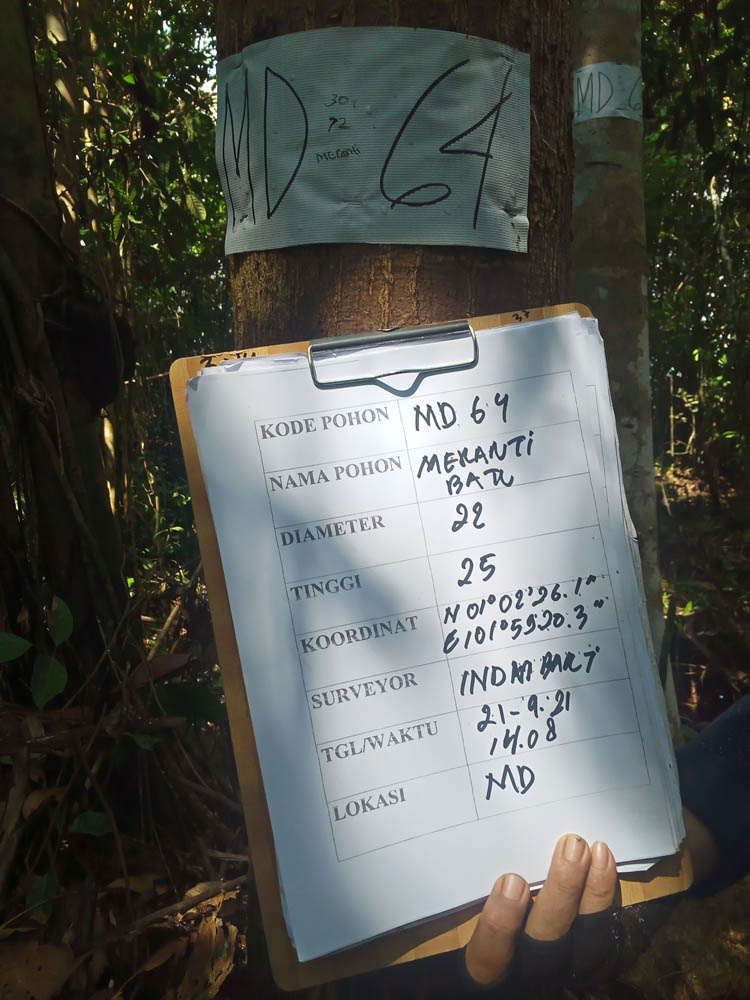 MD 64
30
72
MERANTI
MD 6
KODE POHON MD 64
NAMA POHON MERANTI
BATU
DIAMETER 22
TINGGI 25
KOORDINAT N 01°02'26.1"
E 101°5520.3"
SURVEYOR
TGL/WAKTU 21-9-21
14.08
LOKASI MD